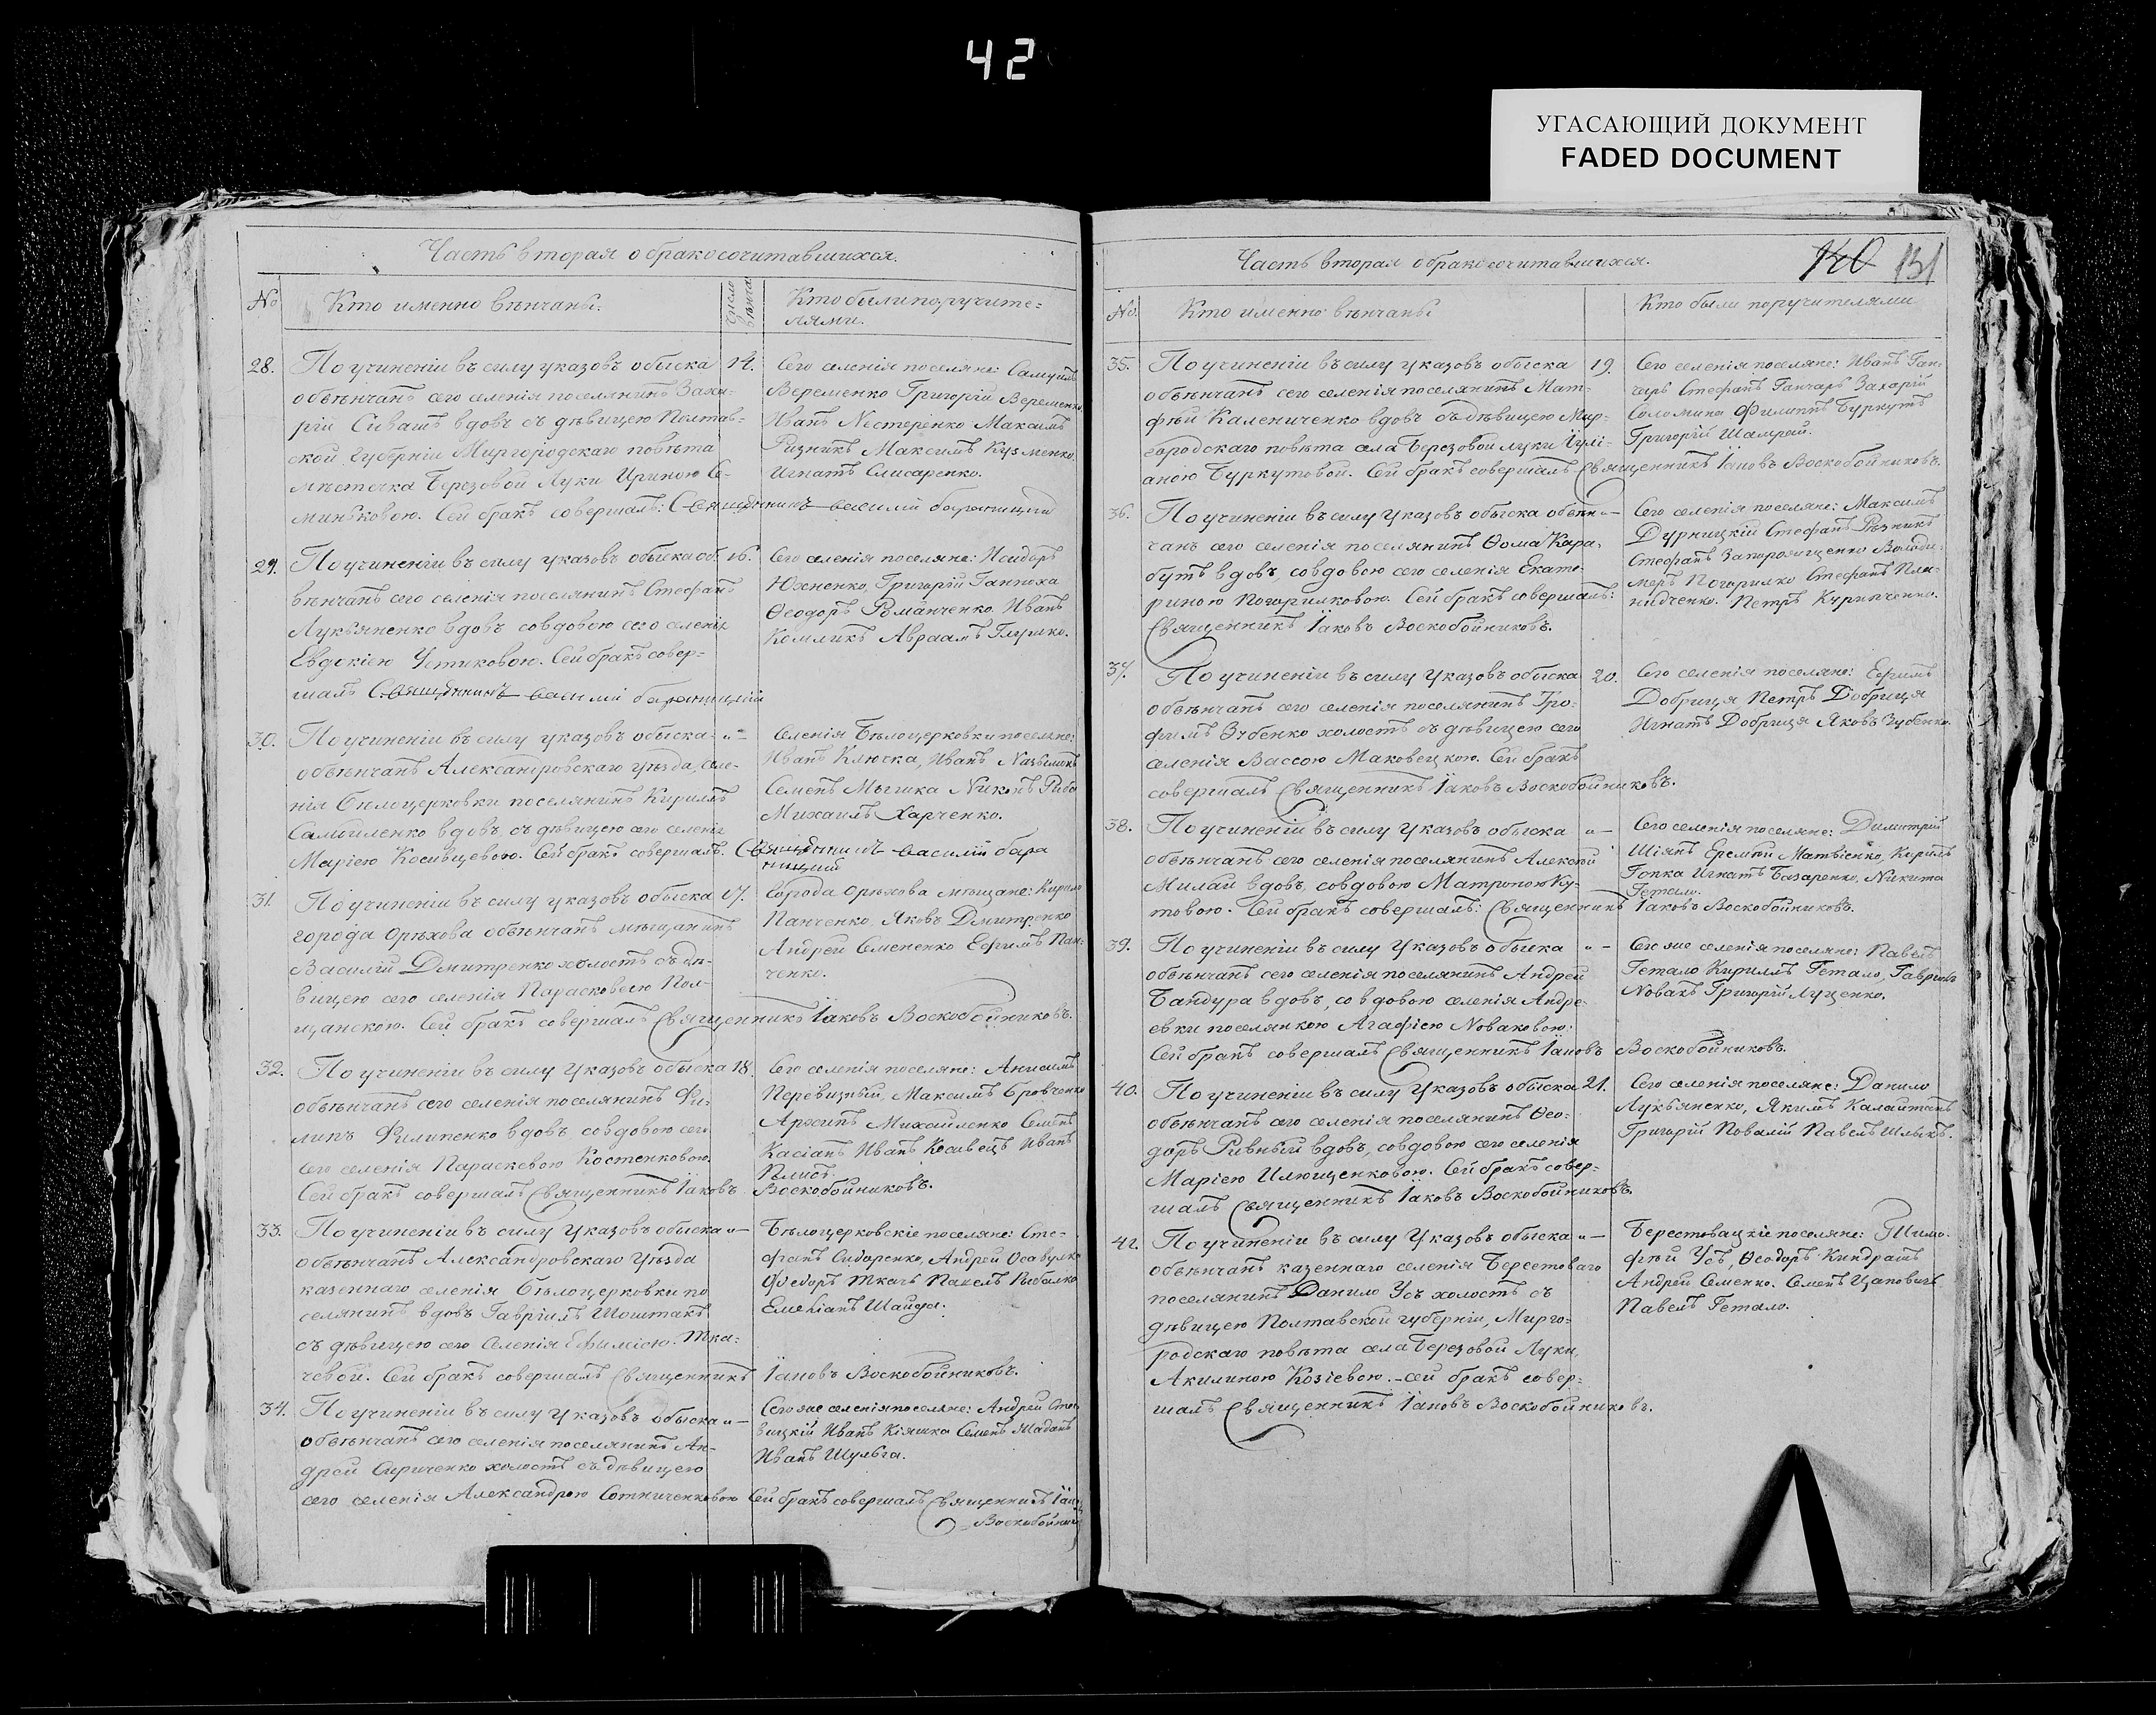 42
УГАСАЮЩИЙ ДОКУМЕНТ
FADED DOCUMENT
Часть вторая о бракосочитавшихся.
№
Кто именно вѣнчаны.
Число
вѣнча
Кто были поручите-
лями.
28.
По учиненіи въ силу указовъ обыска
обвѣнчанъ сего селенія поселянинъ Заха-
рій Сивашъ вдовъ съ дѣвицею Полтав-
ской губерніи Миргородскаго повѣта
мѣстечка Березовой Луки Ириною Се-
миньковою. Сей бракъ совершалъ: Священникъ василій
14.
Сего селенія поселяне: Самуилъ
Веременко Григорій Веременко,
Иванъ Нестеренко Максимъ
Ризникъ Максимъ Кузменко.
Игнатъ Слисаренко.
29.
По учиненіи въ силу указовъ обыска об.
вѣнчанъ сего селенія поселянинъ Стефанъ
Лукьяненко вдовъ совдовою сего селенія
Евдокіею Устиковою. Сей бракъ совер-
шалъ Священникъ василій
16.
Сего селенія поселяне: Исидоръ
Юхненко, Григорій Ганноха
Ѳеодоръ Романченко. Иванъ
Комликъ Авраамъ Глушко.
30.
По учиненіи въ силу указовъ обыска
обвѣнчанъ Александровскаго уѣзда, селе-
нія Бѣлоцерковки поселянинъ Кириллъ
Самойленко вдовъ, съ дѣвицею сего селенія
Маріею Косивцевою. Сей бракъ совершалъ. Священникъ василій
"-
Селенія Бѣлоцерковки поселяне:
Иванъ Клюска, Иванъ
Семенъ Мышка Никонъ Риба
Михаилъ Харченко.
31.
По учиненіи въ силу указовъ обыска
города Орѣхова обвѣнчанъ мѣщанинъ
Василій Дмитренко холостъ съ дѣ-
вицею сего селенія Парасковьею Пол-
щанскою. Сей бракъ совершалъ Священникъ Іаковъ Воскобойниковъ.
17.
Города Орѣхова мѣщане: Кирило
Панченко, Яковъ Дмитренко
Андрей Семененко Ефимъ Пан-
ченко.
32.
По учиненіи въ силу указовъ обыска
обвѣнчанъ сего селенія поселянинъ Фи-
липъ Филипенко вдовъ совдовою сего
сего селенія Параскевою Костенковою.
Сей бракъ совершалъ Священникъ Іаковъ Воскобойниковъ.
18.
Сего селенія поселяне: Анисимъ
Перевизный, Максимъ Бровченко
Архипъ Михайленко Семенъ
Касіанъ Иванъ Косивецъ Иванъ
Плисъ.
33.
По учиненіи въ силу указовъ обыска
обвѣнчанъ Александровскаго уѣзда
казеннаго селенія Бѣлоцерковки по
селянинъ вдовъ Гавріилъ Шоштакъ
съ дѣвицею сего селенія Ефиміею. Тка-
чевой. Сей бракъ совершалъ Священникъ Іаковъ Воскобойниковъ.
"-
Бѣлоцерковскіе поселяне: Сте-
фанъ Сидаренко, Андрей Осавулко
Федоръ Ткачъ Павелъ Рыбалко
Емеліанъ Шайда.
34.
По учиненіи въ силу указовъ обыска
обвѣнчанъ сего селенія поселянинъ Ан-
дрей Сириченко холостъ съ дѣвицею
сего селенія Александрою Сотниченковою Сей бракъ совершалъ Священникъ Іаковъ
Воскобойник
"-
Сего же селенія поселяне: Андрей
вицкій Иванъ Кіяшко Семенъ Жаданъ
Иванъ Шульга.
Часть вторая о бракосочитавшихся.
140 131
№.
Кто именно вѣнчаны
Кто были поручителями
35.
По учиненіи въ силу указовъ обыска
обвѣнчанъ сего селенія поселянинъ Мат-
фѣй Калениченко вдовъ съ дѣвицею Мир-
городскаго повѣта села Березовой луки Іулі-
аною Буркутовой. Сей бракъ совершалъ Священникъ Іаковъ Воскобойниковъ.
19.
Сего селенія поселяне: Иванъ Ган-
чаръ Стефанъ Ганчаръ Захарій
Соломика Филиппъ Буркутъ
Григорій Шамрай.
36.
По учиненіи въ силу указовъ обыска обвѣн-
чанъ сего селенія поселянинъ Ѳома Кара-
бутъ вдовъ, совдовою сего селенія Екате-
риною Погорилковою. Сей бракъ совершалъ:
Священникъ Іаковъ Воскобойниковъ.
"-
Сего селенія поселяне: Максимъ
Дурницкій Стефанъ Рѣзникъ
Стефанъ Запорожченко Володи-
меръ Погорилко Стефанъ Пла-
нидченко. Петръ
37.
По учиненіи въ силу указовъ обыска
обвѣнчанъ сего селенія поселянинъ Тро-
фимъ Зубенко холостъ съ дѣвицею сего
селенія Вассою Маковецкою. Сей бракъ
совершалъ Священникъ Іаковъ Воскобойниковъ.
20.
Сего селенія поселяне: Ефимъ
Добриця Петръ Добриця
Игнатъ Добриця Яковъ Зубенко.
38.
По учиненіи въ силу указовъ обыска
обвѣнчанъ сего селенія поселянинъ Алексѣй
Милай вдовъ, совдовою Матроною Ку-
товою. Сей бракъ совершалъ: Священникъ Іаковъ Воскобойниковъ.
"-
Сего селенія поселяне: Димитрій
Шіянъ Еремѣй Матвіенко, Кирилъ
Гопка Игнатъ Базаренко, Никита
Гетало.
39.
По учиненіи въ силу указовъ обыска
обвѣнчанъ сего селенія поселянинъ Андрей
Бандура вдовъ, совдовою селенія Андре-
евки поселянкою Агафіею Новаковою.
Сей бракъ совершалъ Священникъ Іаковъ Воскобойниковъ.
"-
Сего же селенія поселяне: Павелъ
Гетало Кириллъ Гетало, Гавріилъ
Новакъ Григорій Луценко.
40.
По учиненіи въ силу указовъ обыска
обвѣнчанъ сего селенія поселянинъ Ѳео-
доръ Ривный вдовъ, совдовою сего селенія
Маріею Илющенковою. Сей бракъ совер-
шалъ Священникъ Іаковъ Воскобойниковъ.
21.
Сего селенія поселяне: Данило
Лукьяненко, Якимъ Калайтанъ
Григорій Повалій Павелъ Шлыкъ.
41.
По учиненіи въ силу указовъ обыска
обвѣнчанъ казеннаго селенія Берестоваго
поселянинъ Данило Усъ холостъ съ
дѣвицею Полтавской губерніи, Мирго-
родскаго повѣта села Березовой Луки,
Акилиною Козіевою. - сей бракъ совер-
шалъ Священникъ Іаковъ Воскобойниковъ.
"-
Берестовацкіе поселяне: Тимо-
фѣй Усъ, Ѳеодоръ Киндратъ
Андрей Семенко. Семенъ Цаповичъ
Павелъ Гетало.